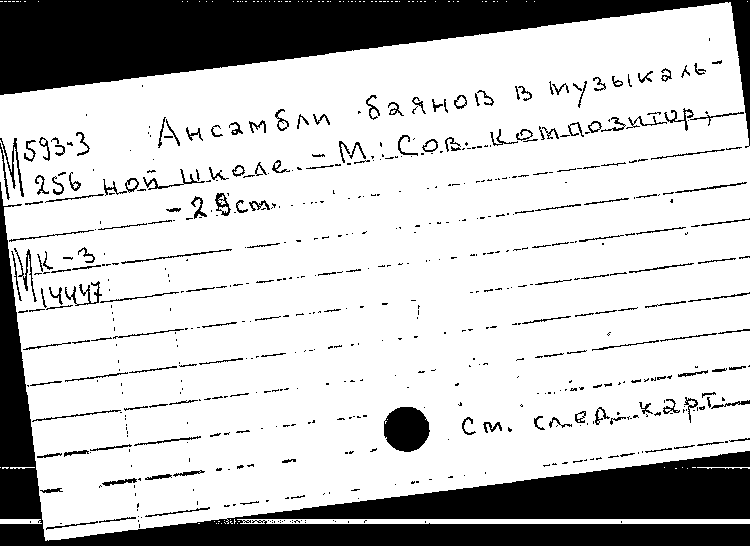 М 593-3 Ансамбли баянов в музыкаль-
256 ной школе. - М.: Сов. композитор,
- 29 см.
М К-3
14447
См. след. карт.